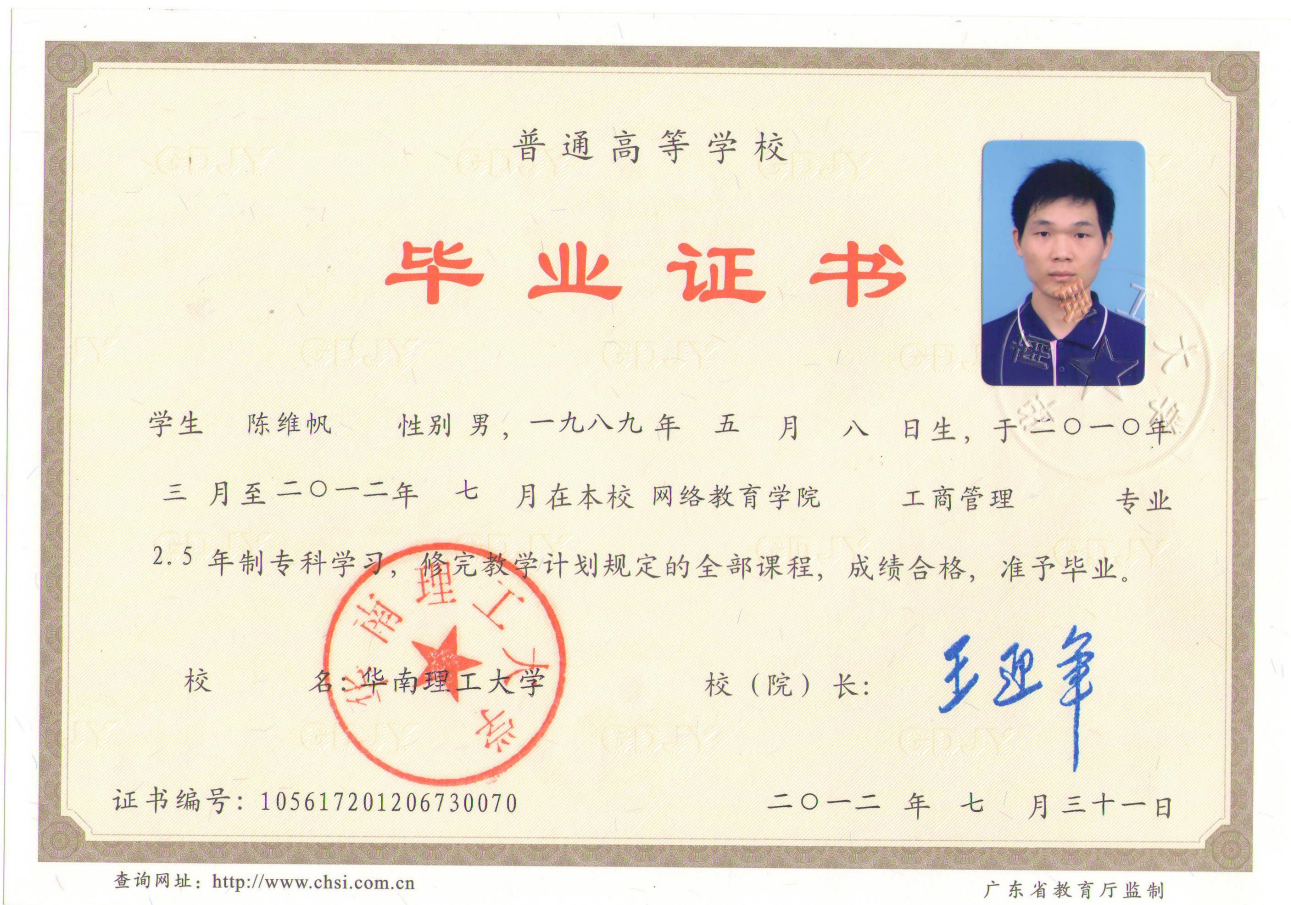 普通高等学校
毕业证书
学生 陈维帆 性别 男，一九八九年 五 月 八 日生，于二〇一〇年
三 月至二〇一二年 七 月在本校 网络教育学院 工商管理 专业
2.5 年制专科学习，修完教学计划规定的全部课程，成绩合格，准予毕业。
校 名：华南理工大学
校（院）长：
华南理工大学
证书编号：105617201206730070
二〇一二 年 七 月三十一日
查询网址：http://www.chsi.com.cn
广东省教育厅监制